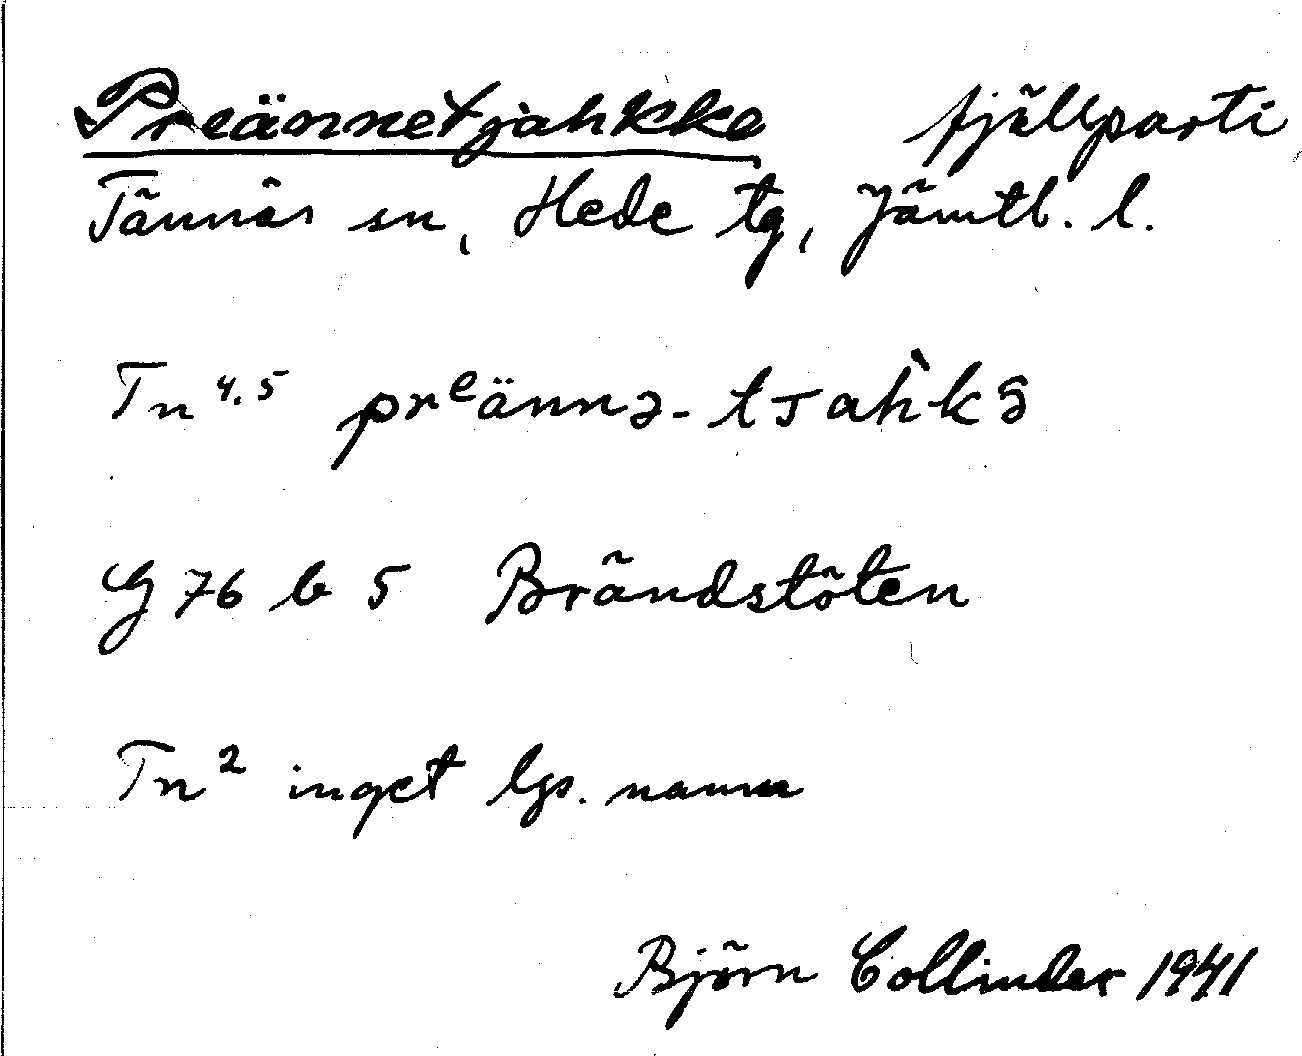 Preännetjahkke fjällparti
Tännäs sn, Hede tg, Jämtl. l.
Tn 4.5 prᵉännə-tjahkə
G 76 b 5 Brändstöten
Tn 2 inget lgs. namn
Björn Collinder 1941